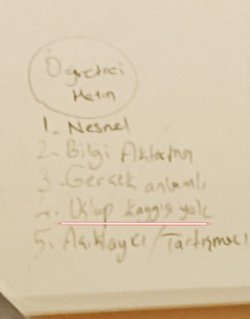 Öğretici
Metin
1. Nesnel
2. Bilgi Aktarımı
3. Gerçek anlamlı
4. Üslup kaygısı yok
5. Açıklayıcı / Tartışmacı